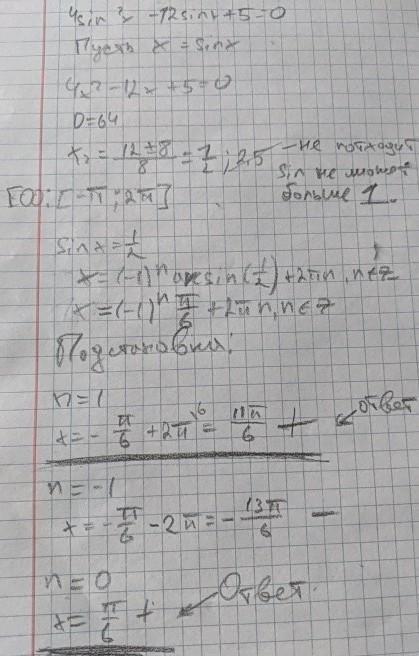 4sin²x -12sinx+5=0
Пусть x = sinx
4x²-12x+5=0
D=64
x₂ = (12±8)/8 = 1/2 ; 2,5 – не потходит
sin не может
больше 1.
[-π ; 2π]
sin x = 1/2
x = (-1)ⁿ arcsin(1/2) + 2πn, n∈Z
x = (-1)ⁿ π/6 + 2πn, n∈Z
Подстановка:
n=1
x = - π/6 + 2π^{\6} = 11π/6 + ответ
n = -1
x = - π/6 - 2π = - 13π/6 –
n = 0
x = π/6 + Ответ.